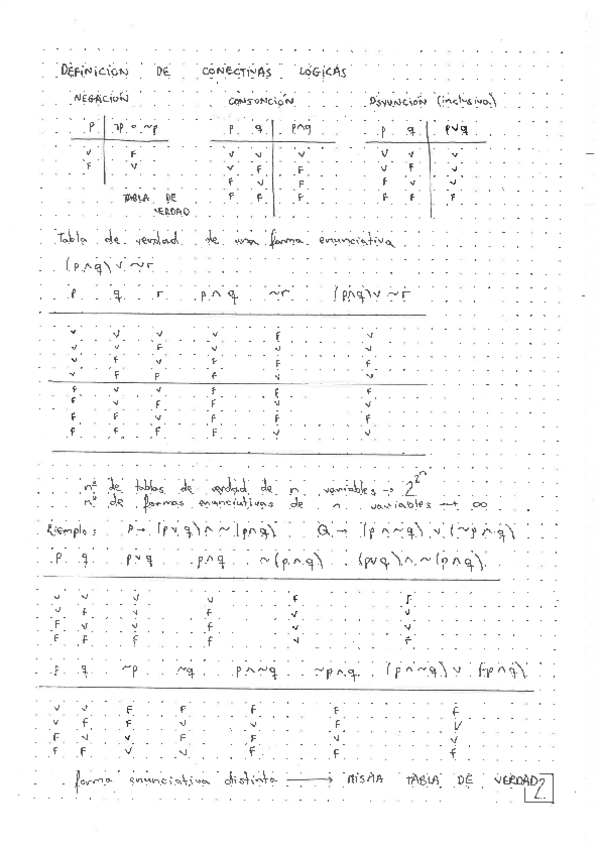 DEFINICIÓN DE CONECTIVAS LÓGICAS
NEGACIÓN CONJUNCIÓN DISYUNCIÓN (inclusiva)
p ⌐p o ~p p q p∧q p q p∨q
V F V V V V V V
F V V F F V F V
F V F F V V
F F F F F F
TABLA DE
VERDAD
Tabla de verdad de una forma enunciativa
(p∧q)∨~r
p q r p∧q ~r (p∧q)∨~r
V V V V F V
V V F V V V
V F V F F F
V F F F V V
F V V F F F
F V F F V V
F F V F F F
F F F F V V
nº de tablas de verdad de n variables → 2^2^n
nº de formas enunciativas de n variables → ∞
Ejemplo: P→ (p∨q)∧~(p∧q) Q→ (p∧~q)∨(~p∧q)
p q p∨q p∧q ~(p∧q) (p∨q)∧~(p∧q)
V V V V F F
V F V F V V
F V V F V V
F F F F V F
p q ~p ~q p∧~q ~p∧q (p∧~q)∨(~p∧q)
V V F F F F F
V F F V V F V
F V V F F V V
F F V V F F F
forma enunciativa distinta → MISMA TABLA DE VERDAD
2